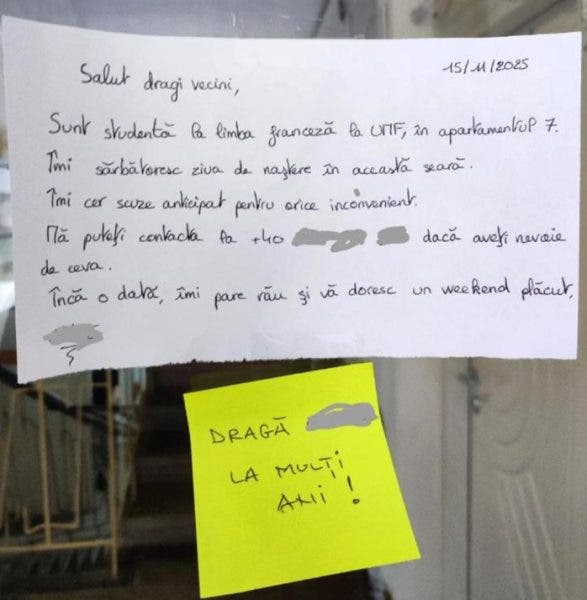 Salut dragi vecini,
15/11/2025
Sunt studentă la limba franceză la UMF, în apartamentul 7.
Îmi sărbătoresc ziua de naștere în această seară.
Îmi cer scuze anticipat pentru orice inconvenient.
Mă puteți contacta la +40 dacă aveți nevoie
de ceva.
Încă o dată, îmi pare rău și vă doresc un weekend plăcut,
DRAGĂ
LA MULȚI
ANI!